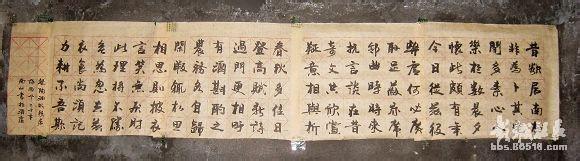 昔欲居南村
非為卜其宅
聞多素心人
樂於數晨夕
懷此頗有年
今日從茲役
弊廬何必廣
取足蔽床席
鄰曲時時來
抗言談在昔
奇文共欣賞
疑義相與析
春秋多佳日
登高賦新詩
過門更相呼
有酒斟酌之
農務各自歸
閒暇輒相思
相思則披衣
言笑無厭時
此理將不勝
無為忽去茲
衣食當須記
力耕不吾欺
bbs.86516.com